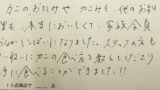 カニのお刺身や カニみそ、他のお料
理も、本当においしくて、家族全員
おなかいっぱいになりました。スタッフの方も
ねいにカニの食べ方を教えてくださり
に食べることができました!!
10点満点で 点